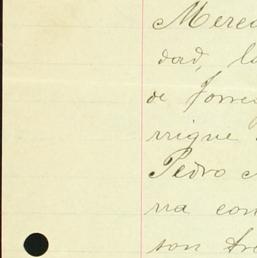 Merce
dad, la
de Torre
rrique
Pedro
na con
son tre